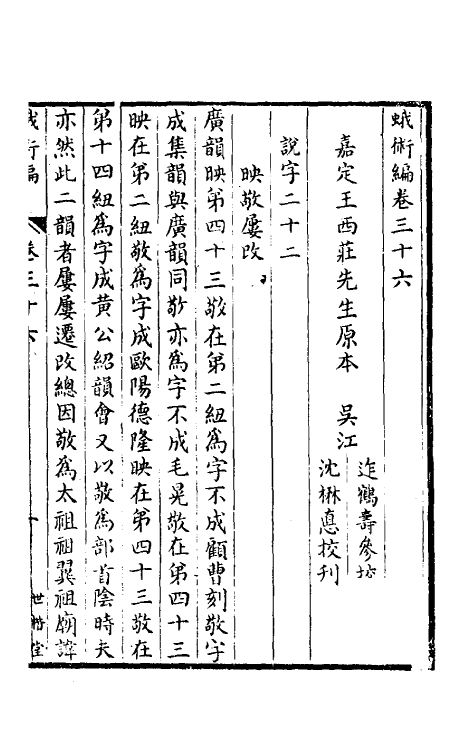 蛾術編卷三十六
嘉定王西莊先生原本　吳江
迮鶴壽參校
沈楙惪校刊
說字二十二
映敬屢改
廣韻映第四十三敬在第二紐爲字不成顧曹刻敬字
成集韻與廣韻同敬亦爲字不成毛晃敬在第四十三
映在第二紐敬爲字成歐陽德隆映在第四十三敬在
第十四紐爲字成黄公紹韻會又以敬爲部首陰時夫
亦然此二韻者屢屢遷改總因敬爲太祖祖翼祖廟諱
蛾術編
卷三十六
一
世楷堂